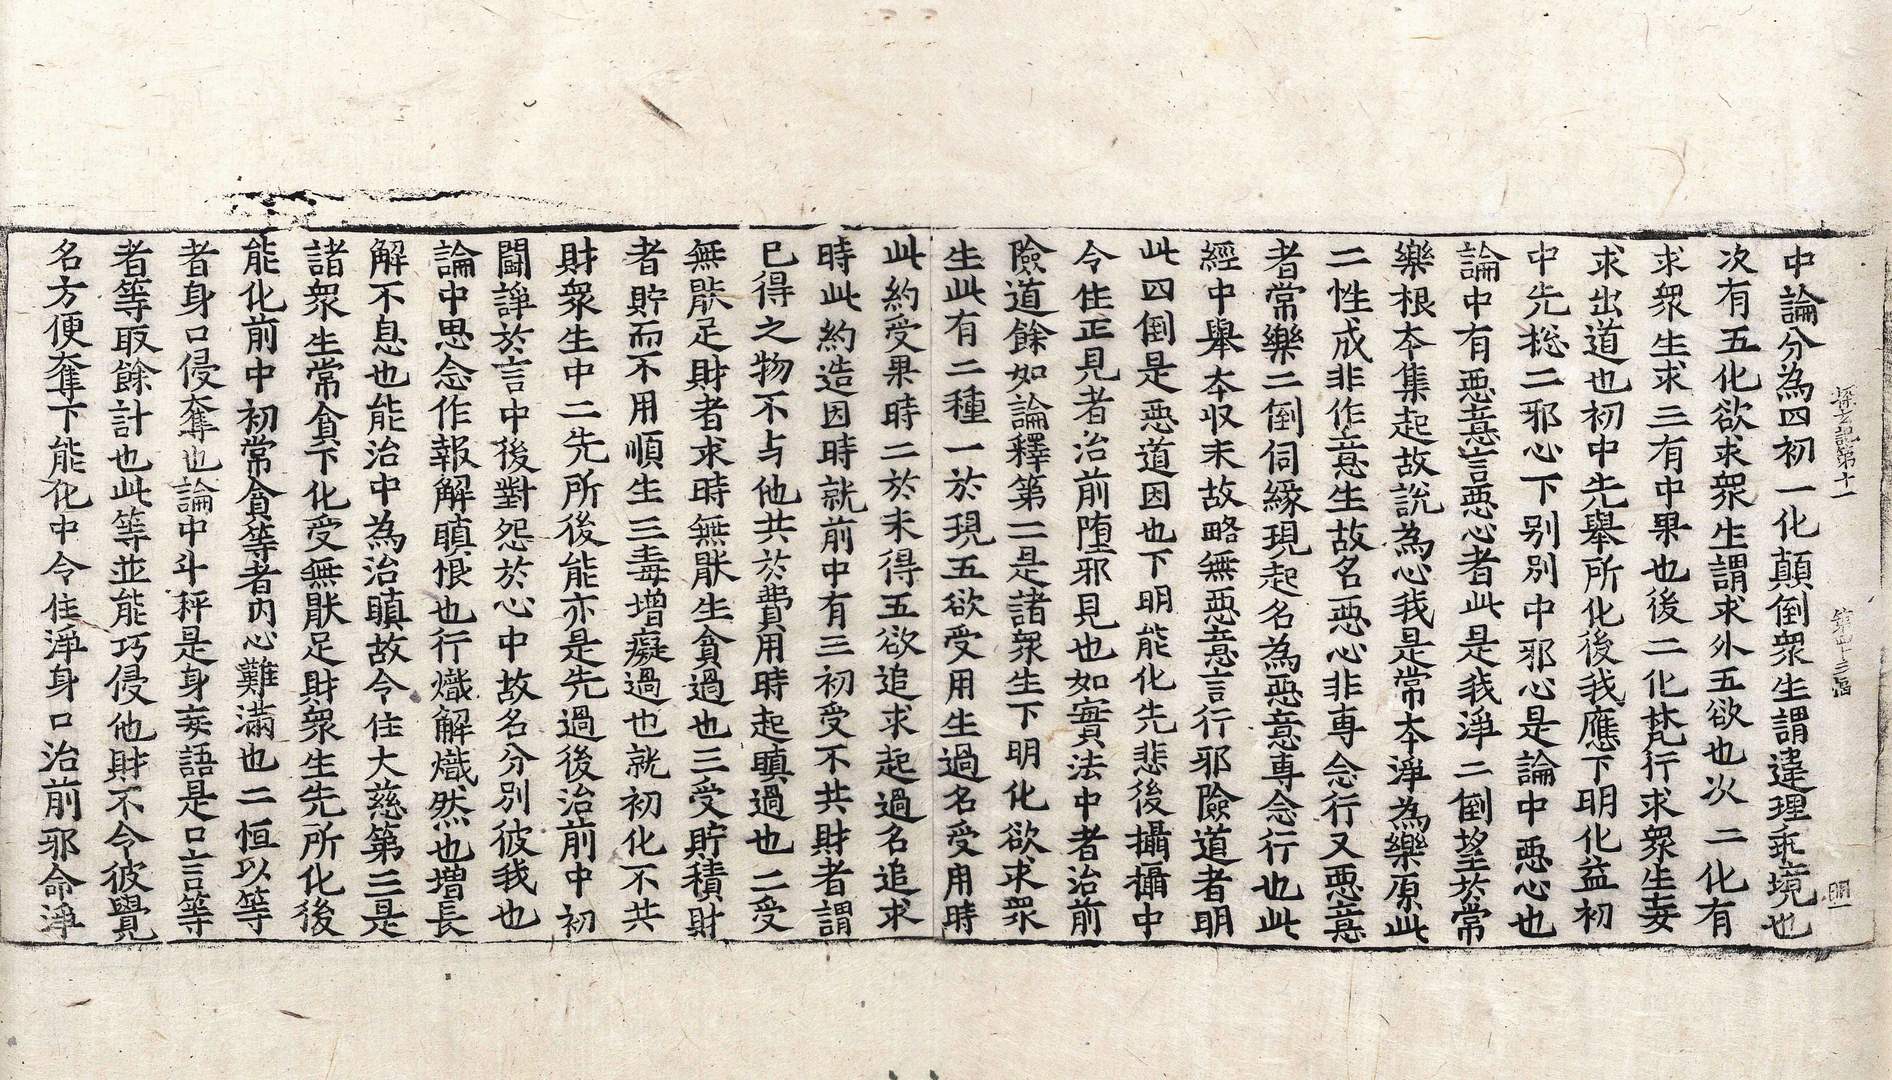 探玄記第十一 第四十三幅 明
中論分為四初一化顛倒衆生謂違理乖境也
次有五化欲求衆生謂求外五欲也次二化有
求衆生求三有中果也後二化梵行求衆生妄
求出道也初中先舉所化後我應下明化益初
中先総二邪心下别別中邪心是論中悪心也
論中有悪意言悪心者此是我淨二倒望於常
樂根本集起故說為心我是常本淨為樂原此
二性成非作意生故名悪心非専念行又悪意
者常樂二倒伺縁現起名為悪意専念行也此
經中舉本収末故略無悪意言行邪險道者明
此四倒是悪道因也下明能化先悲後攝攝中
令住正見者治前堕邪見也如實法中者治前
險道餘如論釋第二是諸衆生下明化欲求衆
生此有二種一於現五欲受用生過名受用時
此約受果時二於未得五欲追求起過名追求
時此約造因時就前中有三初受不共財者謂
已得之物不与他共於費用時起瞋過也二受
無猒足財者求時無猒生貪過也三受貯積財
者貯而不用順生三毒增癡過也就初化不共
財衆生中二先所後能亦是先過後治前中初
闘諍於言中後對怨於心中故名分別彼我也
論中思念作報解瞋恨也行熾解熾然也增長
解不息也能治中為治瞋故令住大慈第二是
諸衆生常貪下化受無猒足財衆生先所化後
能化前中初常貪等者内心難滿也二恒以等
者身口侵奪也論中斗秤是身妄語是口言等
者等取餘計也此等並能巧侵他財不令彼覺
名方便奪下能化中令住淨身口治前邪命淨